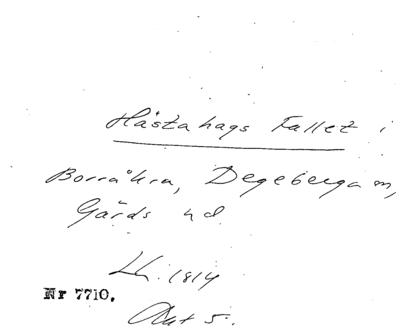 Hästahags Fallet i
Borråkra, Degeberga sn,
Gärds hd
Lh. 1814
Nr 7710.
Akt 5.